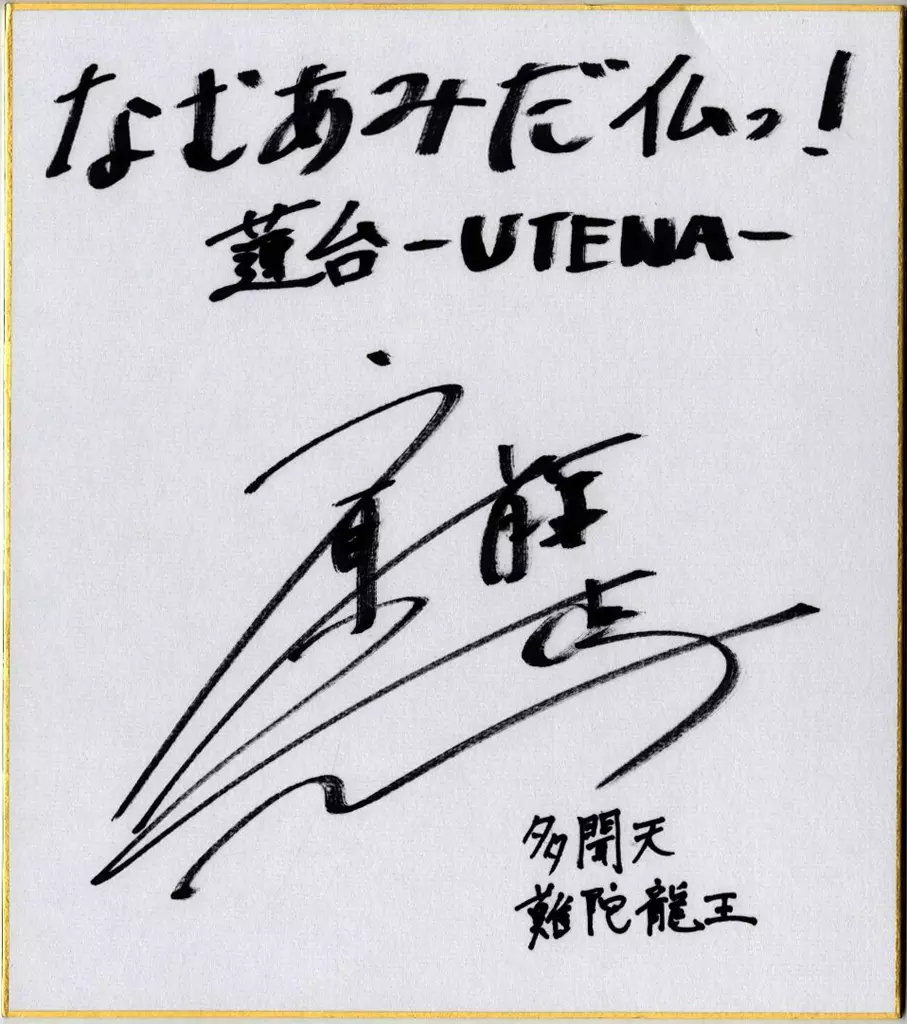 なむあみだ仏っ!
蓮台-UTENA-
多聞天
難陀龍王